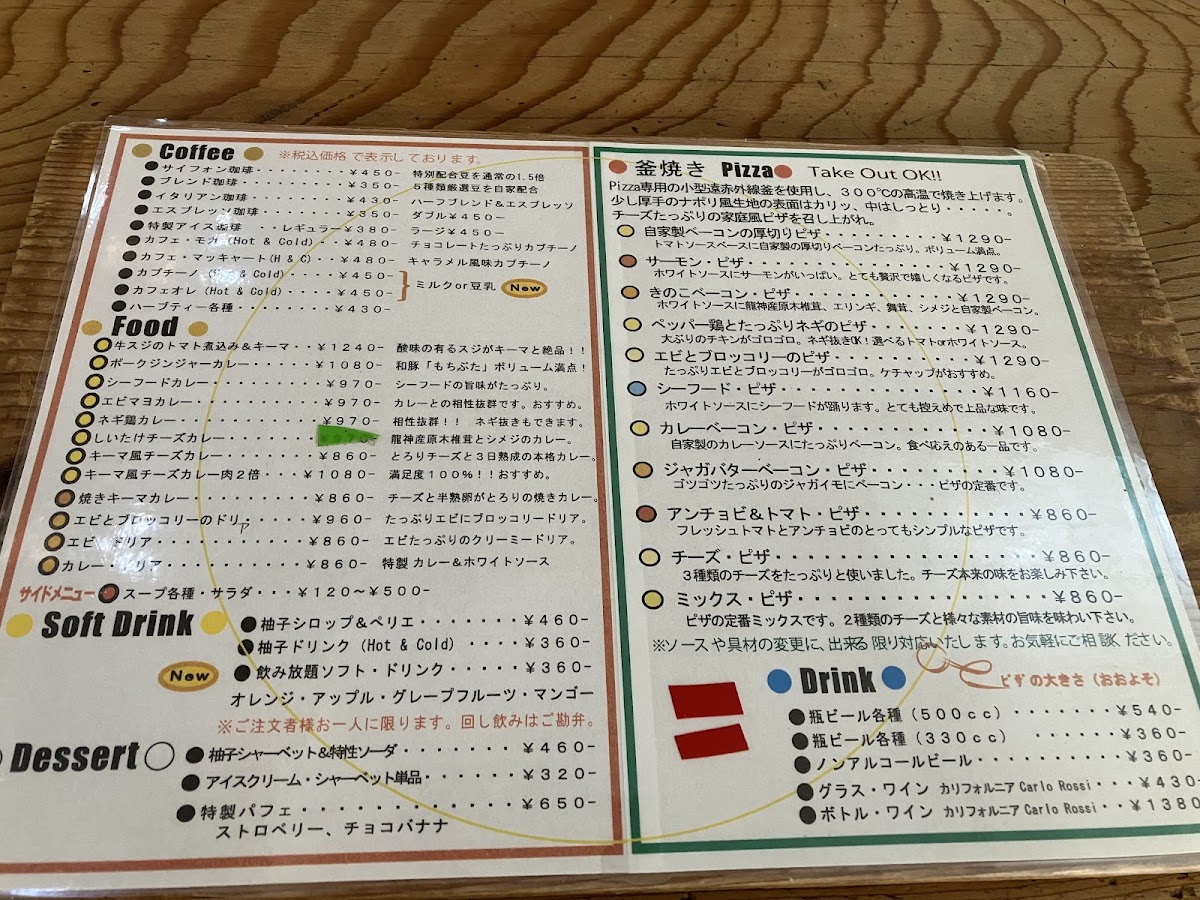 Coffee ※税込価格で表示しております。
サイフォン珈琲・・・・・・・・¥450- 特別配合豆を通常の1.5倍
ブレンド珈琲・・・・・・・・・¥350- 5種類厳選豆を自家配合
イタリアン珈琲・・・・・・・・¥430- ハーフブレンド&エスプレッソ
エスプレッソ珈琲・・・・・・・¥350- ダブル¥450-
特製アイス珈琲 ・・レギュラー¥380- ラージ¥450-
カフェ・モカ (Hot & Cold)・・・¥480- チョコレートたっぷりカプチーノ
カフェ・マッキャート(H & C)・・¥480- キャラメル風味カプチーノ
カプチーノ (Hot & Cold)・・・・¥450-
カフェオレ (Hot & Cold)・・・・¥450- ミルクor豆乳 New
ハーブティー各種・・・・・・・¥430-
Food
牛スジのトマト煮込み&キーマ・・¥1240- 酸味の有るスジがキーマと絶品!!
ポークジンジャーカレー・・・・・¥1080- 和豚「もちぶた」ボリューム満点!
シーフードカレー・・・・・・・・¥970- シーフードの旨味がたっぷり。
エビマヨカレー・・・・・・・・・¥970- カレーとの相性抜群です。おすすめ。
ネギ鶏カレー・・・・・・・・・・¥970- 相性抜群!! ネギ抜きもできます。
しいたけチーズカレー・・・・・・ 龍神産原木椎茸とシメジのカレー。
キーマ風チーズカレー・・・・・・¥860- とろりチーズと3日熟成の本格カレー。
キーマ風チーズカレー肉2倍・・・¥1080- 満足度100%!!おすすめ。
焼きキーマカレー・・・・・・・・¥860- チーズと半熟卵がとろりの焼きカレー。
エビとブロッコリーのドリア・・・・¥960- たっぷりエビにブロッコリードリア。
エビ・ドリア・・・・・・・・・・¥860- エビたっぷりのクリーミードリア。
カレー・ドリア・・・・・・・・・¥860- 特製 カレー&ホワイトソース
サイドメニュー スープ各種・サラダ・・・¥120〜¥500-
Soft Drink
柚子シロップ&ペリエ・・・・・・・¥460-
柚子ドリンク (Hot & Cold) ・・・・¥360-
New 飲み放題ソフト・ドリンク・・・・・¥360-
オレンジ・アップル・グレープフルーツ・マンゴー
※ご注文者様お一人に限ります。回し飲みはご勘弁。
Dessert
柚子シャーベット&特性ソーダ・・・・・・・¥460-
アイスクリーム・シャーベット単品・・・・・・¥320-
特製パフェ・・・・・・・・・・・・・¥650-
ストロベリー、チョコバナナ
釜焼き Pizza Take Out OK!!
Pizza専用の小型遠赤外線釜を使用し、300℃の高温で焼き上げます。
少し厚手のナポリ風生地の表面はカリッ、中はしっとり・・・・・。
チーズたっぷりの家庭風ピザを召し上がれ。
自家製ベーコンの厚切りピザ・・・・・・・・・¥1290-
トマトソースベースに自家製の厚切りベーコンたっぷり。ボリューム満点。
サーモン・ピザ・・・・・・・・・・・・・・¥1290-
ホワイトソースにサーモンがいっぱい。とても贅沢で嬉しくなるピザです。
きのこベーコン・ピザ・・・・・・・・・・・・¥1290-
ホワイトソースに龍神産原木椎茸、エリンギ、舞茸、シメジと自家製ベーコン。
ペッパー鶏とたっぷりネギのピザ・・・・・・・¥1290-
大ぶりのチキンがゴロゴロ。ネギ抜きOK!選べるトマトorホワイトソース。
エビとブロッコリーのピザ・・・・・・・・・・¥1290-
たっぷりエビとブロッコリーがゴロゴロ。ケチャップがおすすめ。
シーフード・ピザ・・・・・・・・・・・・・¥1160-
ホワイトソースにシーフードが踊ります。とても控えめで上品な味です。
カレーベーコン・ピザ・・・・・・・・・・・¥1080-
自家製のカレーソースにたっぷりベーコン。食べ応えのある一品です。
ジャガバターベーコン・ピザ・・・・・・・・¥1080-
ゴツゴツたっぷりのジャガイモにベーコン・・・ピザの定番です。
アンチョビ&トマト・ピザ・・・・・・・・・・¥860-
フレッシュトマトとアンチョビのとってもシンプルなピザです。
チーズ・ピザ・・・・・・・・・・・・・・・¥860-
3種類のチーズをたっぷりと使いました。チーズ本来の味をお楽しみ下さい。
ミックス・ピザ・・・・・・・・・・・・・・¥860-
ピザの定番ミックスです。2種類のチーズと様々な素材の旨味を味わい下さい。
※ソースや具材の変更に、出来る限り対応いたします。お気軽にご相談ください。
ピザの大きさ(おおよそ)
Drink
瓶ビール各種(500cc)・・・・・・・¥540-
瓶ビール各種(330cc) ・・・・・・¥360-
ノンアルコールビール・・・・・・・・・・¥360-
グラス・ワイン カリフォルニア Carlo Rossi・・・¥430-
ボトル・ワイン カリフォルニア Carlo Rossi・・¥1380